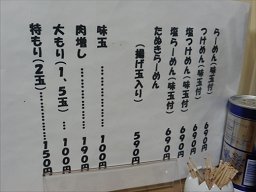 らーめん(味玉付) 690円
つけめん(味玉付) 690円
塩つけめん(味玉付) 690円
塩らーめん(味玉付) 690円
たぬきらーめん 690円
(揚げ玉入り) 590円
味玉………………100円
肉増し……………190円
大もり(1、5玉)…100円
特もり(2玉)………150円